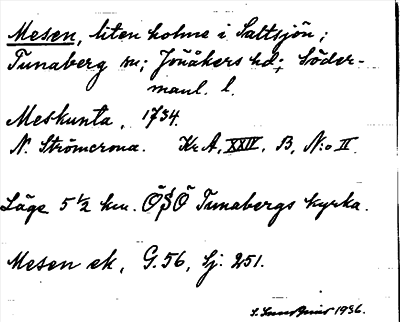 Mesen, liten holme i Saltsjön;
Tunaberg sn; Jönåkers hd; Söder-
manl. l.
Meskunta, 1734.
N. Strömcrona. Kr. A, XXIV. B, N:o II.
Läge 5 1/2 km. ÖSÖ Tunabergs kyrka.
Mesen ek, G. 56, Sj. 251.
1936.